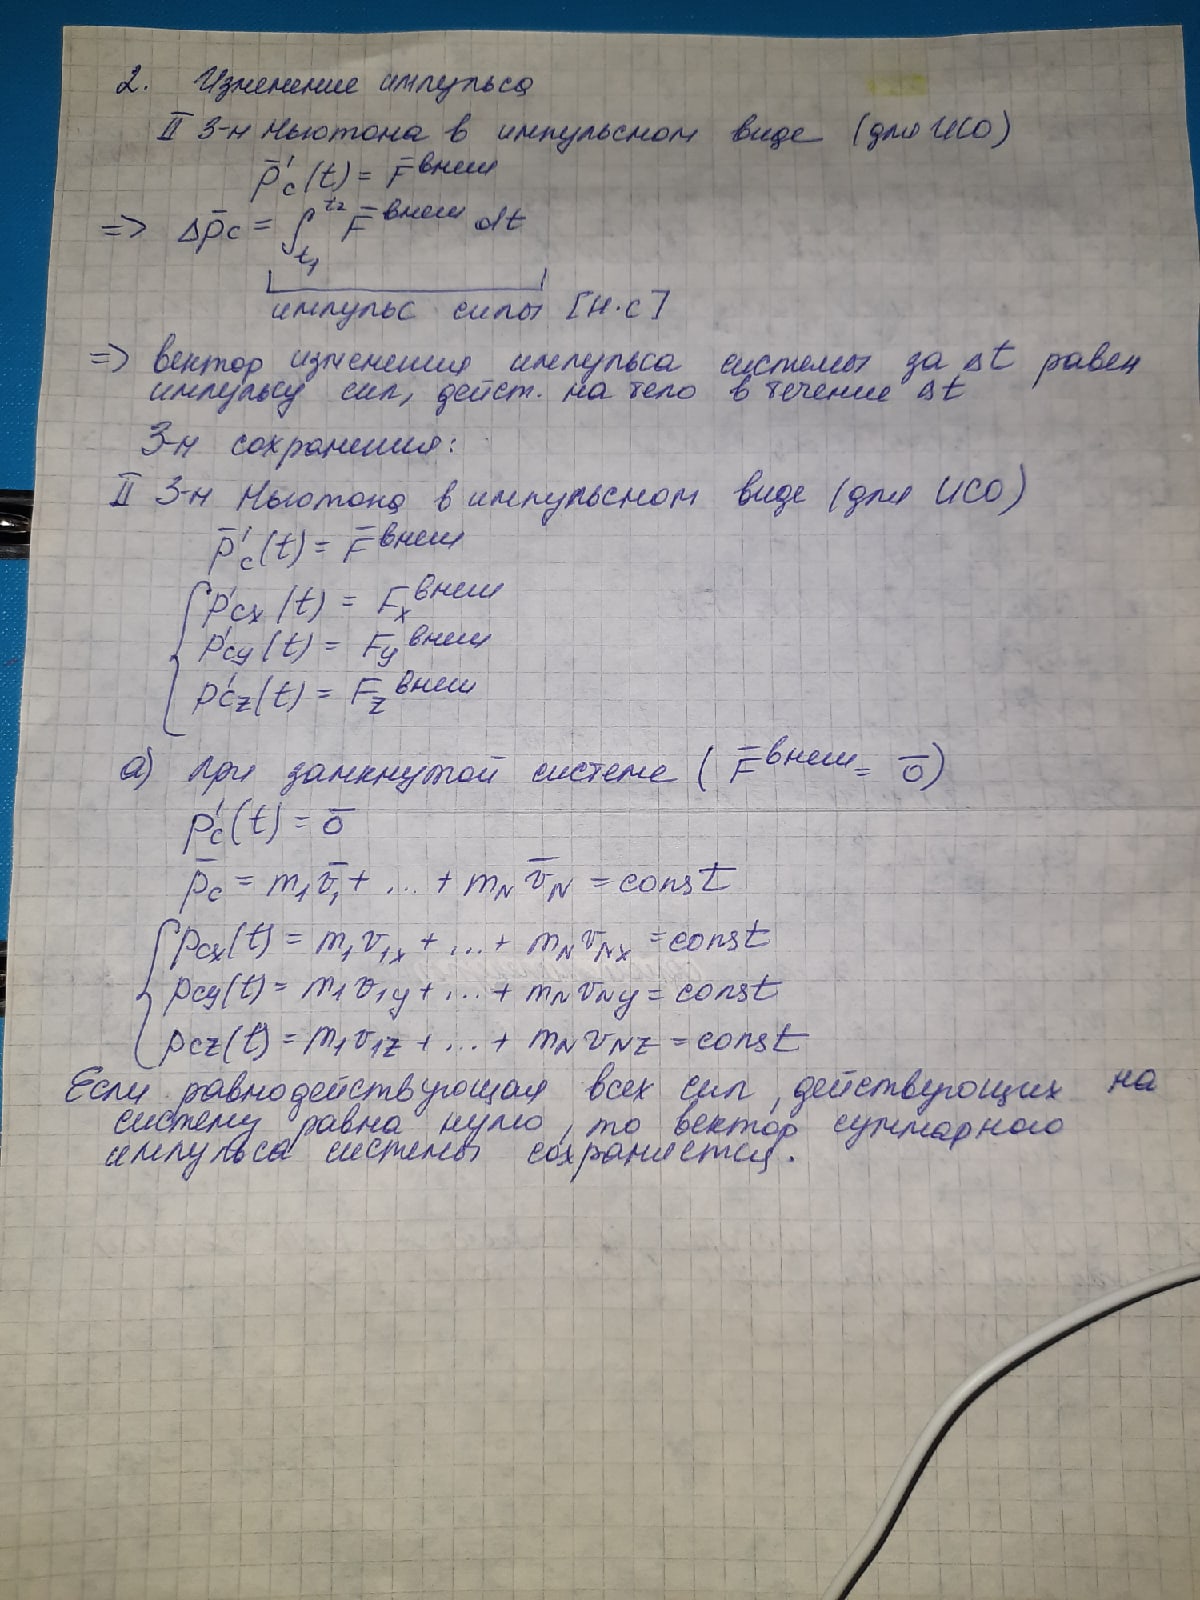 2. Изменение импульса
II з-н Ньютона в импульсном виде (для ИСО)
p̄'c(t) = F̄^внеш
=> Δp̄c = ∫_t1^t2 F̄^внеш dt
импульс силы [Н·с]
=> вектор изменения импульса системы за Δt равен
импульсу сил, дейст. на тело в течение Δt
З-н сохранения:
II з-н Ньютона в импульсном виде (для ИСО)
p̄'c(t) = F̄^внеш
{ p'cx(t) = Fx^внеш
p'cy(t) = Fy^внеш
p'cz(t) = Fz^внеш
а) при замкнутой системе (F̄^внеш = 0̄)
p'c(t) = 0̄
p̄c = m1v̄1 + ... + mN v̄N = const
{ pcx(t) = m1v1x + ... + mN vNx = const
pcy(t) = m1v1y + ... + mN vNy = const
pcz(t) = m1v1z + ... + mN vNz = const
Если равнодействующая всех сил, действующих на
систему равна нулю, то вектор суммарного
импульса системы сохраняется.